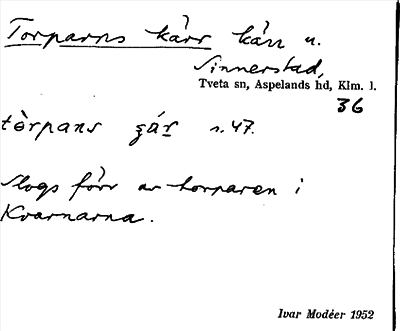 Torparns kärr kärr n.
Sinnerstad,
Tveta sn, Aspelands hd, Klm. l.
36
tòrpans s. 47.
Slogs förr av torparen i
Kvarnarna.
Ivar Modéer 1952